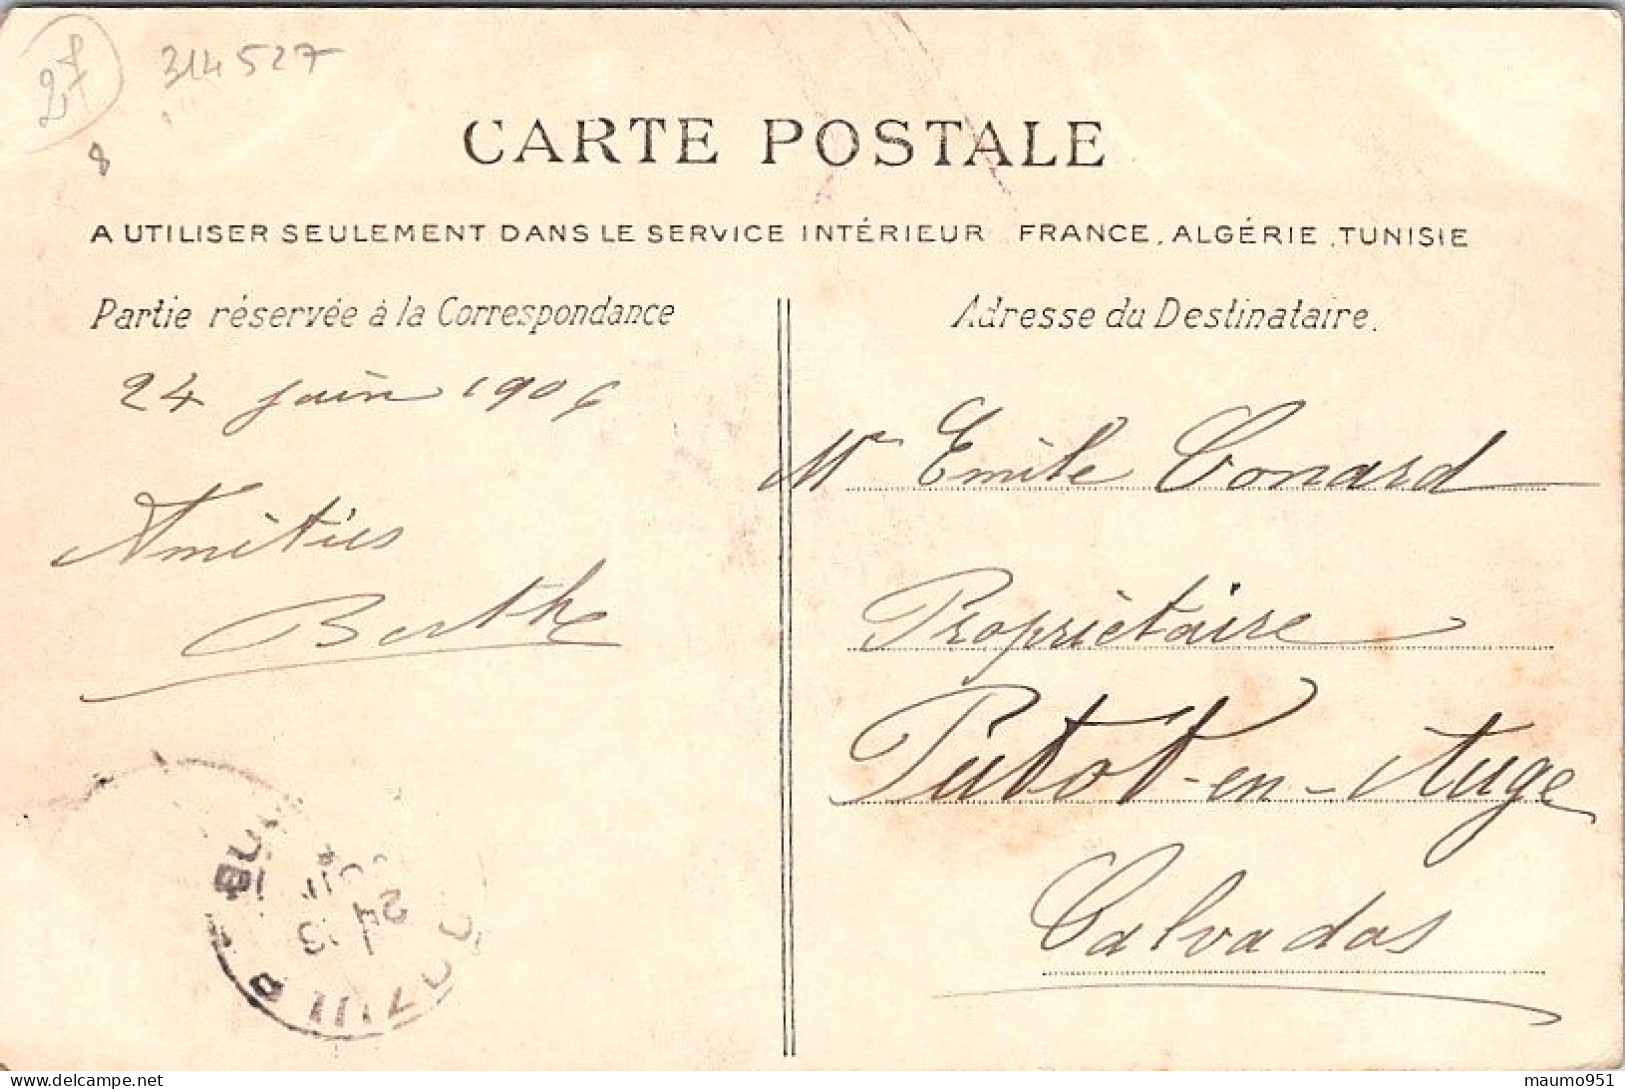 27
314527
8
CARTE POSTALE
A UTILISER SEULEMENT DANS LE SERVICE INTÉRIEUR FRANCE, ALGÉRIE, TUNISIE
Partie réservée à la Correspondance
24 juin 1906
Amitiés
Berthe
Adresse du Destinataire.
Mr Emile Conard
Propriétaire
Putot-en-Auge
Calvados
delcampe.net
maumo951